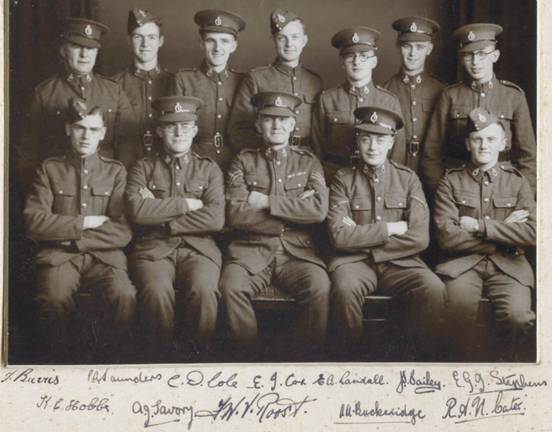 J. Burris P.A. Saunders C. D. Cole E. J. Cox E A. Randall. J.S. Bailey. E.G.J. Stephens
H. C. Hobbs. A.J. Savory J.W.V. Roost. A.H. Ruckeridge R.H.N. Cater.